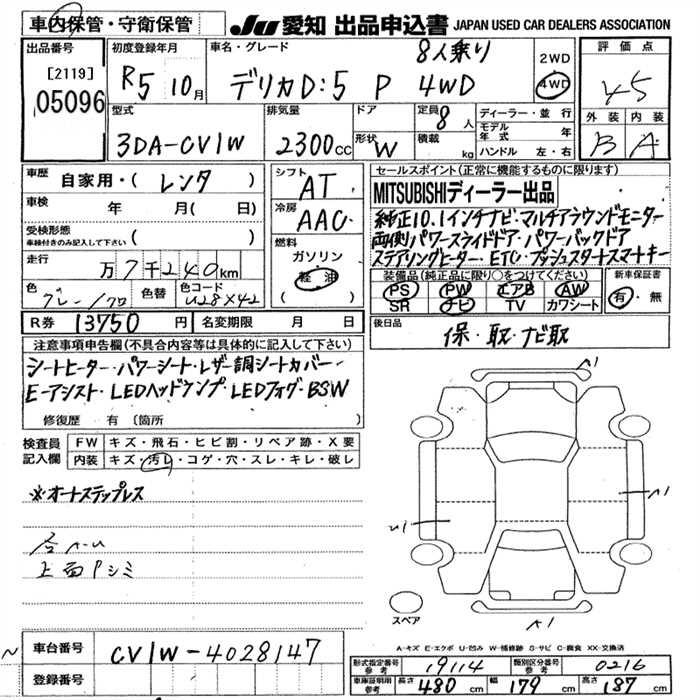 車内保管・守衛保管
JU 愛知 出品申込書 JAPAN USED CAR DEALERS ASSOCIATION
出品番号 [2119] 05096
初度登録年月 R5 10月
車名・グレード デリカD:5 P 4WD 8人乗り
2WD 4WD
評価点 4.5
外装 B 内装 A
型式 3DA-CV1W
排気量 2300cc
ドア 形状 W
定員 8人
積載 kg
ディーラー・並行
モデル年式 年
ハンドル 左・右
車歴 自家用・(レンタ)
車検 年 月( 日)
受検形態 車検付きのみ記入して下さい ( )
走行 万7千240km
色 グレー/クロ 色替 色コード U28X42
シフト AT
冷房 AAC
燃料 ガソリン 軽油
セールスポイント(正常に機能するものに限ります)
MITSUBISHIディーラー出品
純正10.1インチナビ・マルチアラウンドモニター
両側パワースライドドア・パワーバックドア
ステアリングヒーター・ETC・プッシュスタートスマートキー
装備品(純正品に限り○をつけてください)
PS PW エアB AW
SR ナビ TV カワシート
新車保証書 有・無
R券 13750円 名変期限 月 日
後日品 保・取・ナビ取
注意事項申告欄(不具合内容等は具体的に記入して下さい)
シートヒーター・パワーシート・レザー調シートカバー・
E-アシスト・LEDヘッドランプ・LEDフォグ・BSW
修復歴 有(箇所 )
検査員記入欄
FW キズ・飛石・ヒビ割・リペア跡・X要
内装 キズ・汚レ・コゲ・穴・スレ・キレ・破レ
※オートステップレス
各A-U
上面Pシミ
A1
A1
U1
A1
スペア
A-キズ E-エクボ U-凹み W-補修跡 S-サビ C-腐食 XX-交換済
車台番号 CV1W-4028147
登録番号
形式指定番号 参考 19114 類別区分番号 参考 0216
車庫証明用 参考 長さ 480cm 幅 179cm 高さ 187cm